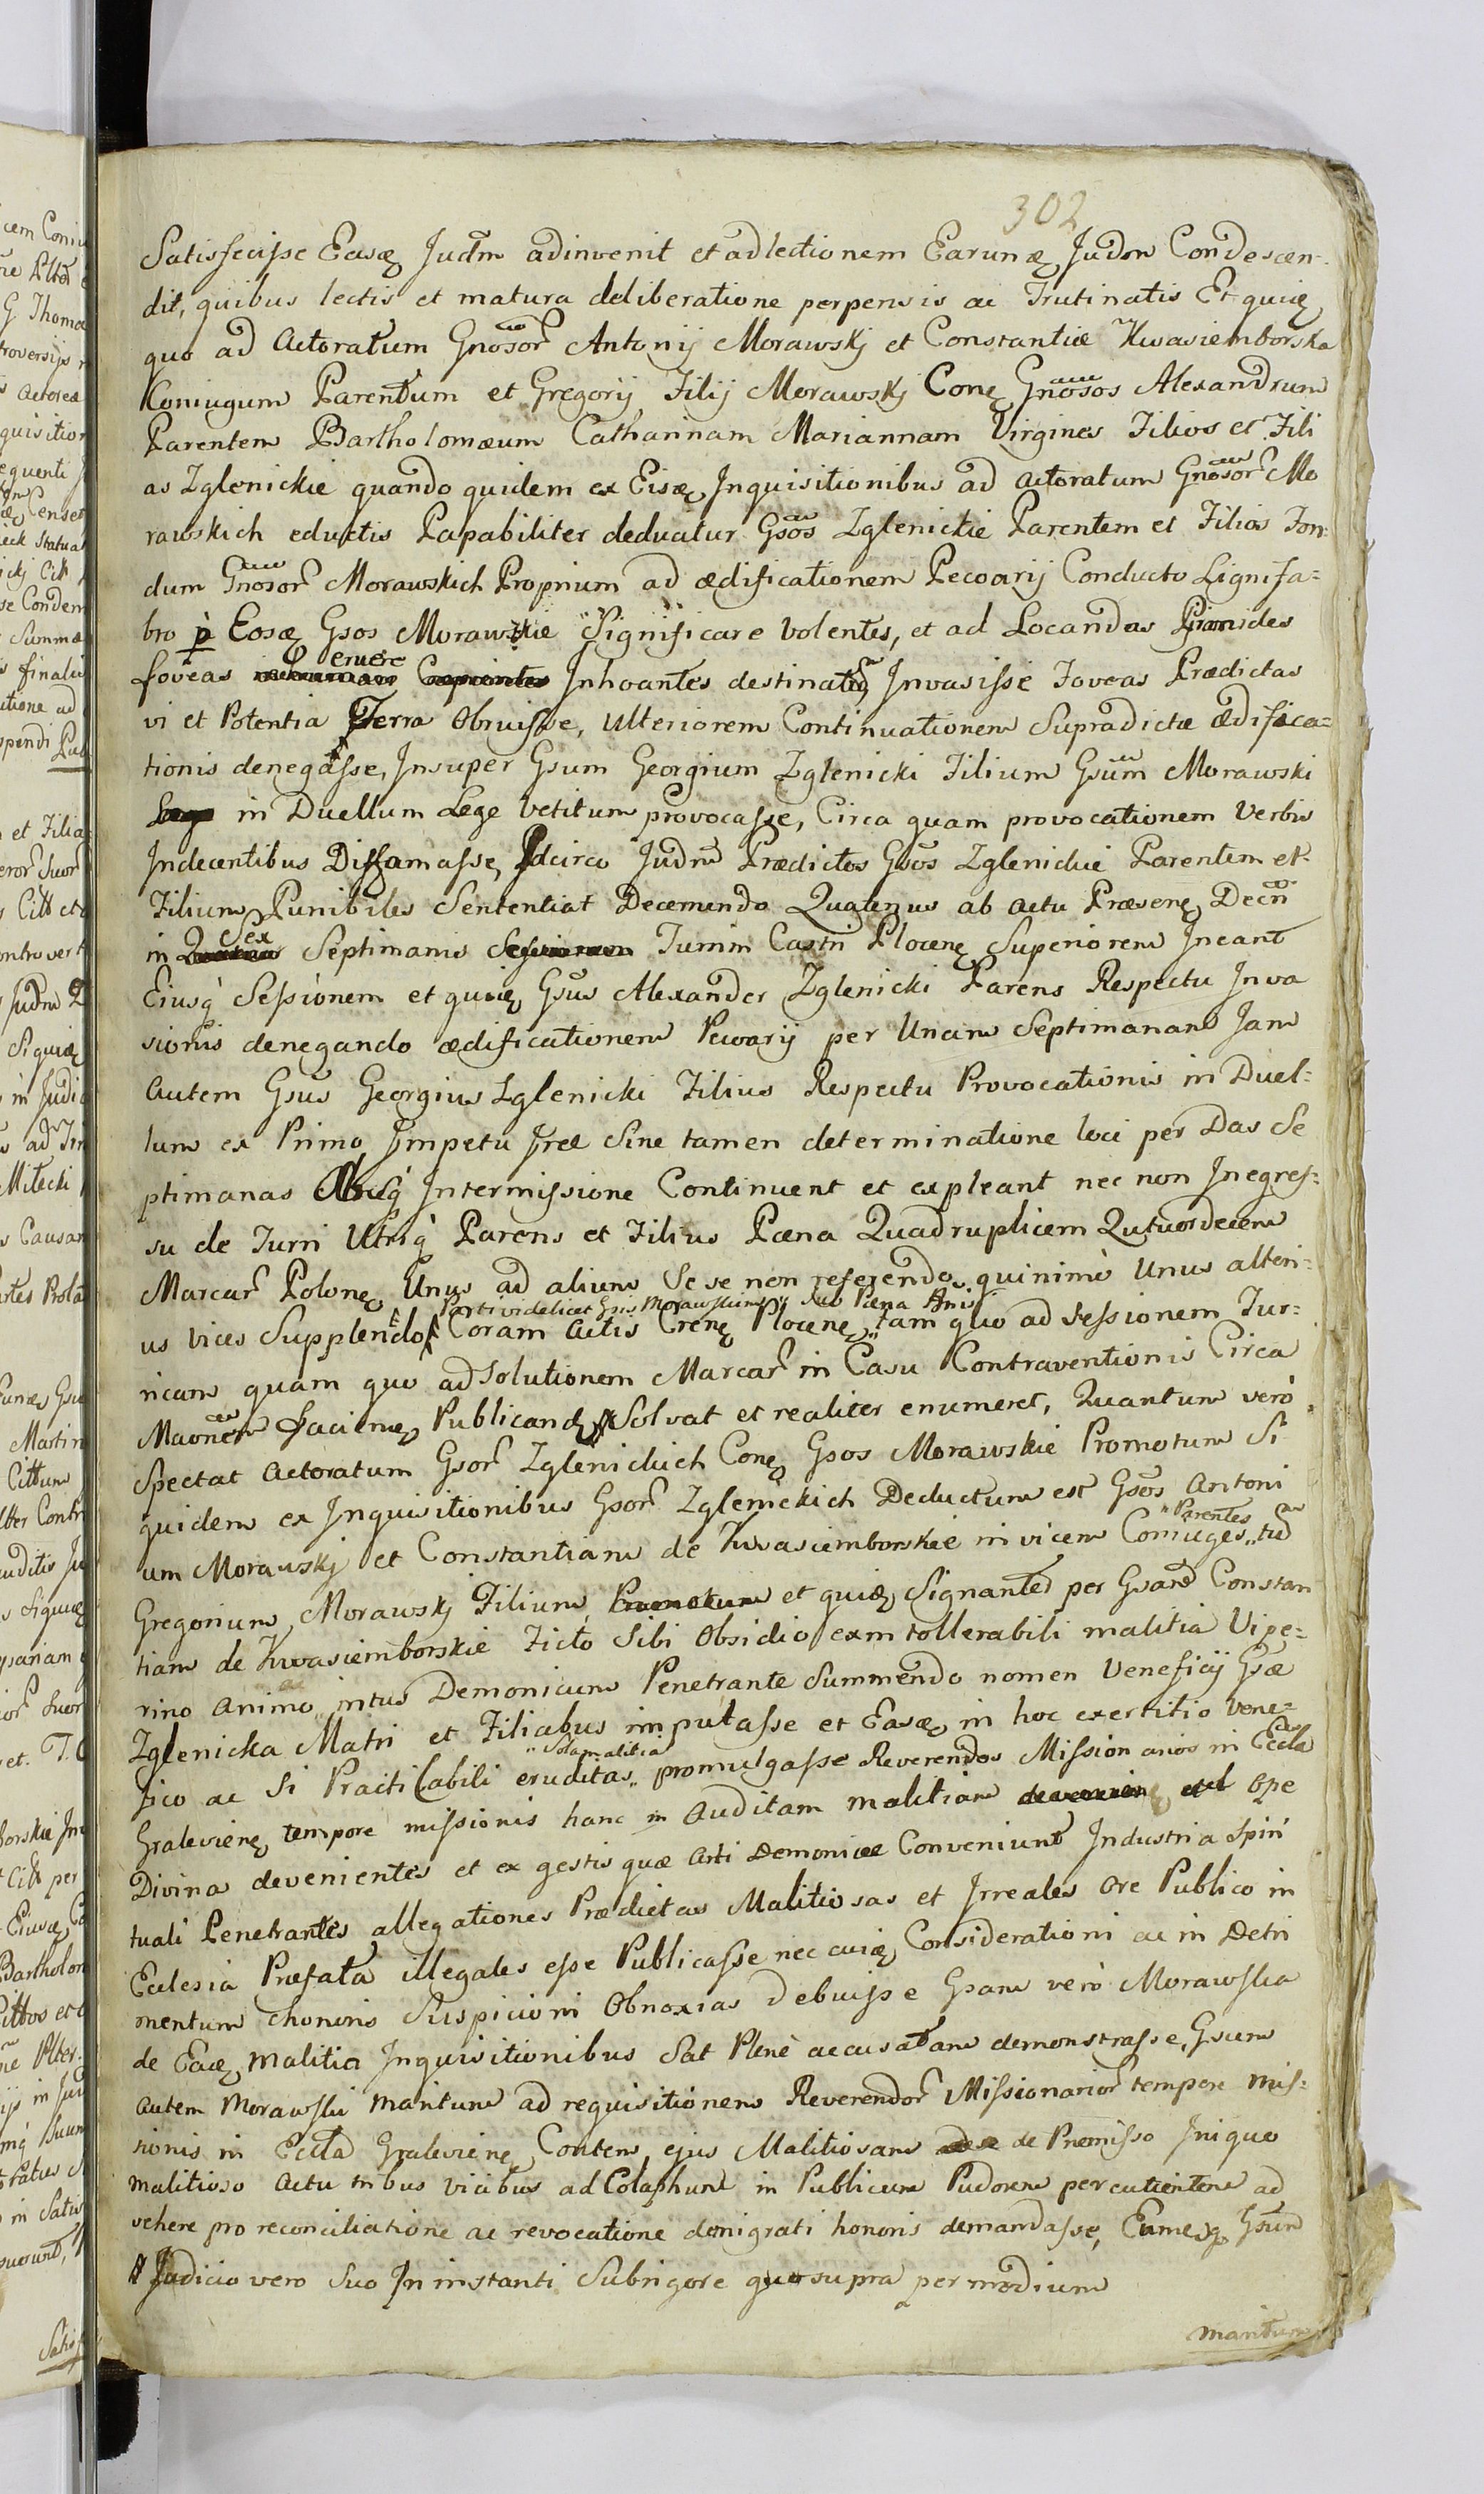 302
Satisfecisse Easq Judm adinvenit et ad lectionem Earunq Judm Condescen-
dit, quibus lectis et matura deliberatione perpensis ac Trutinatis Et quiq
quo ad Actoratum Gnosor Antonij Morawskj et Constantiæ Kwasiemborska
Koniugum Parentum et Gregorij Filij Morawskj Conq Gnosos Alexandrum
Parentem Bartholomæum Catharinam Mariannam Virgines Filios et Fili
as Zglenickie quando quidem ex Eisq Inquisitionibus ad actoratum Gnosor Mo
rawskich eductis Papabiliter deducatur Gsos Zglenickie Parentem et Filios Fon-
dum Gnosor Morawskich Proprium ad ædificationem Pecoarij Conducto Lignifa=
bro p Eosq Gsos Morawskie Significare Volentes, et ad Locandas
foveas eruere Inhoantes destinatq Invasisse Foveas Prædictas
vi et Potentia Terra Obruisse, Ulteriorem Continuationem Supradictæ Ædifica=
tionis denegasse, Insuper Gsum Georgium Zglenicki Filium Gsum Morawski
in Duellum Lege Vetitum provocasse, Circa quam provocationem Verbis
Indecentibus Diffamasse, Idcirco Judm Prædictos Gsos Zglenickie Parentem et
Filium Punibiles Sententiat Decernendo Quatenus ab actu Præsenq Decn
in Sex Septimanis Turrim Castri Plocenq Superiorem Ineant
Eiusq Sessionem et quiq Gsus Alexander Zglenicki Parens Respectu Inva
sionis denegando ædificationem Pecoarij per Unam Septimanam Jam
autem Gsus Georgius Zglenicki Filius Respectu Provocationis in Duel=
lum ex Primo Impetu Iræ Sine tamen determinatione loci per Das Se
ptimanas Absq Intermissione Continuent et expleant nec non Inegres=
su de Turri Utriq Parens et Filius Pæna Quadruplicem Qutuordecem
Marcar Polonq Unus ad alium Se se non referendo quinimò Unus alteri=
us vices Supplendo Parti videlicet Gsis Morawskim Coram Actis Crenq Plocenq sub Pæna Anis tam quo ad sessionem Tur=
ricam quam quo ad Solutionem Marcar in Casu Contraventionis Circa
Maonem Faciemq Publicand Solvat et realiter enumeret, Quantum verò
Spectat Actoratum Gsor Zglenickich Conq Gsos Morawskie Promotum Si
quidem ex Inquisitionibus Gsor Zglenickich Deductum est Gsos Antoni
um Morawskj et Constantiam de Kwasiemborskie in vicem Coniuges Parentes tud
Gregorium Morawskj Filium et quiq Signanted per Gsam Constan
tiam de Kwasiemborskie Ficto Sibi Obsidio exm tollerabili malitia Vipe=
rino animo ac intus Demonicum Penetrante Summendo nomen Veneficij Gsæ
Zglenicka Matri et Filiabus imputasse et Easq in hoc exertitio Vene=
fico ac Si Practicabili eruditas Sola malitia promulgasse Reverendos Missionarios in Eccla
Gralevienq tempore missionis hanc in Auditam malitiam ope
Divina devenientes et ex gestis quæ arti Demonicæ Conveniunt Industria Spiri
tuali Penetrantes allegationes Prædictas Malitiosas et Irreales Ore Publico in
Eclesia Præfata illegales esse Publicasse nec cuiq Considerationi ac in Detri
mentum honoris Suspicioni Obnoxias Debuisse Gsam verò Morawska
de Eaq malitia Inquisitionibus Sat Plenè accusatam demonstrasse, Gsum
autem Morawski Maritum ad requisitionem Reverendor Missionarior tempore mis=
sionis in Eccla Gralevienq Contem ejus Malitiosam de Præmisso Iniquo
malitioso actu tribus vicibus ad Colaphum in Publicum Pudorem percutientem ad
vehere pro reconciliatione ac revocatione denigrati honoris demandasse, Eumq Gsum
Judicio vero Suo In instanti Subrigore quo supra per medium
maritum